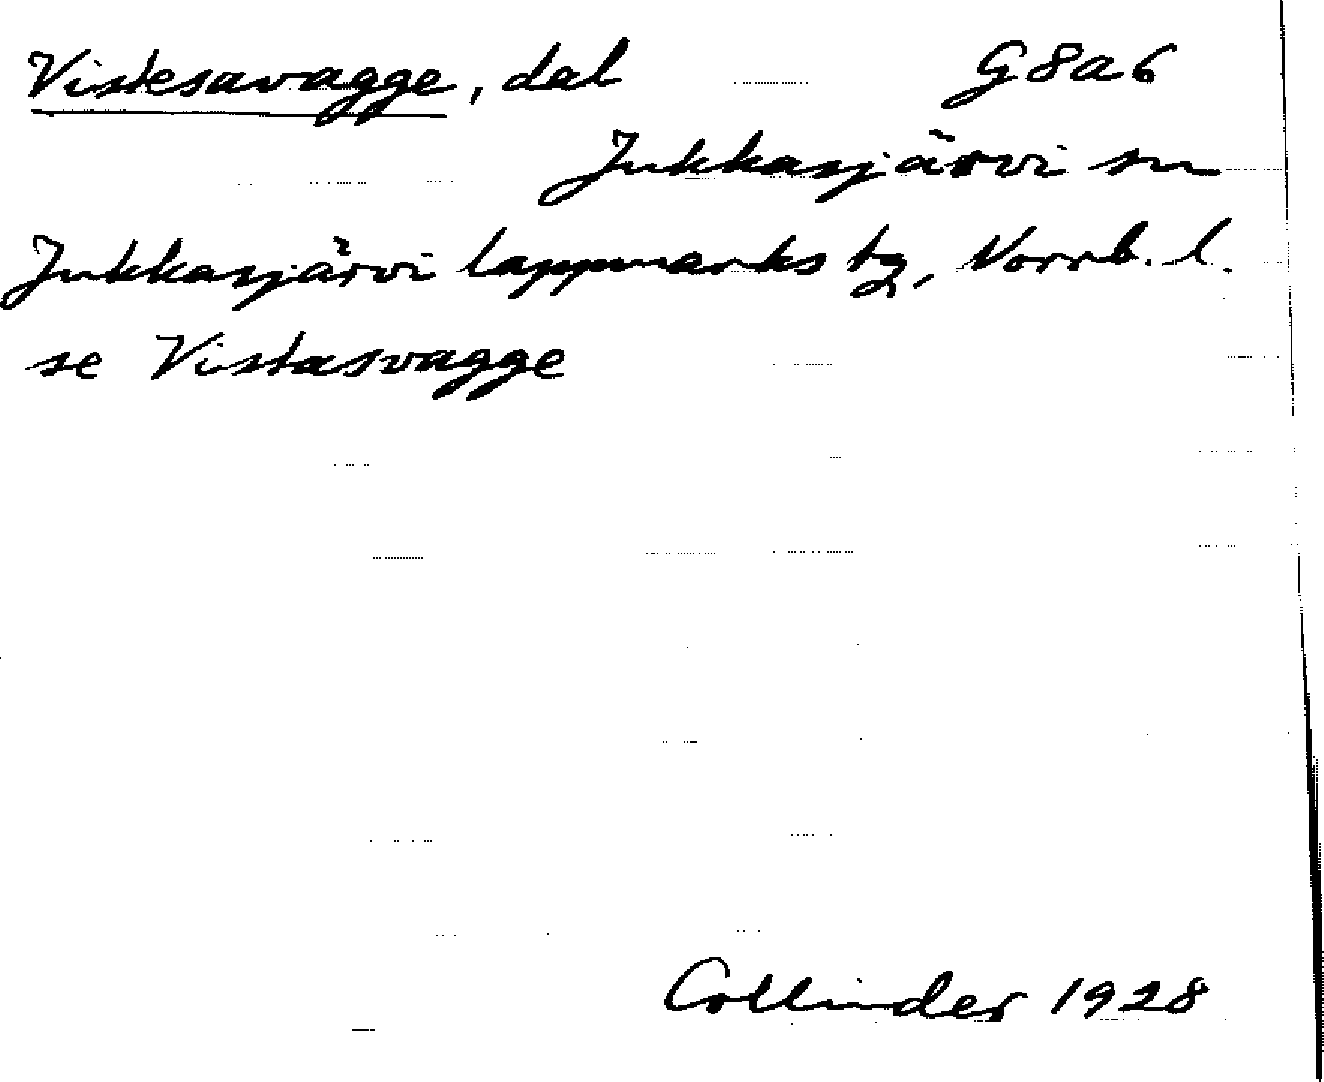 Vistesavagge, dal G8a6
Jukkasjärvi sn
Jukkasjärvi lappmarks tg, Norrb. l.
se Vistasvagge
Collinder 1928